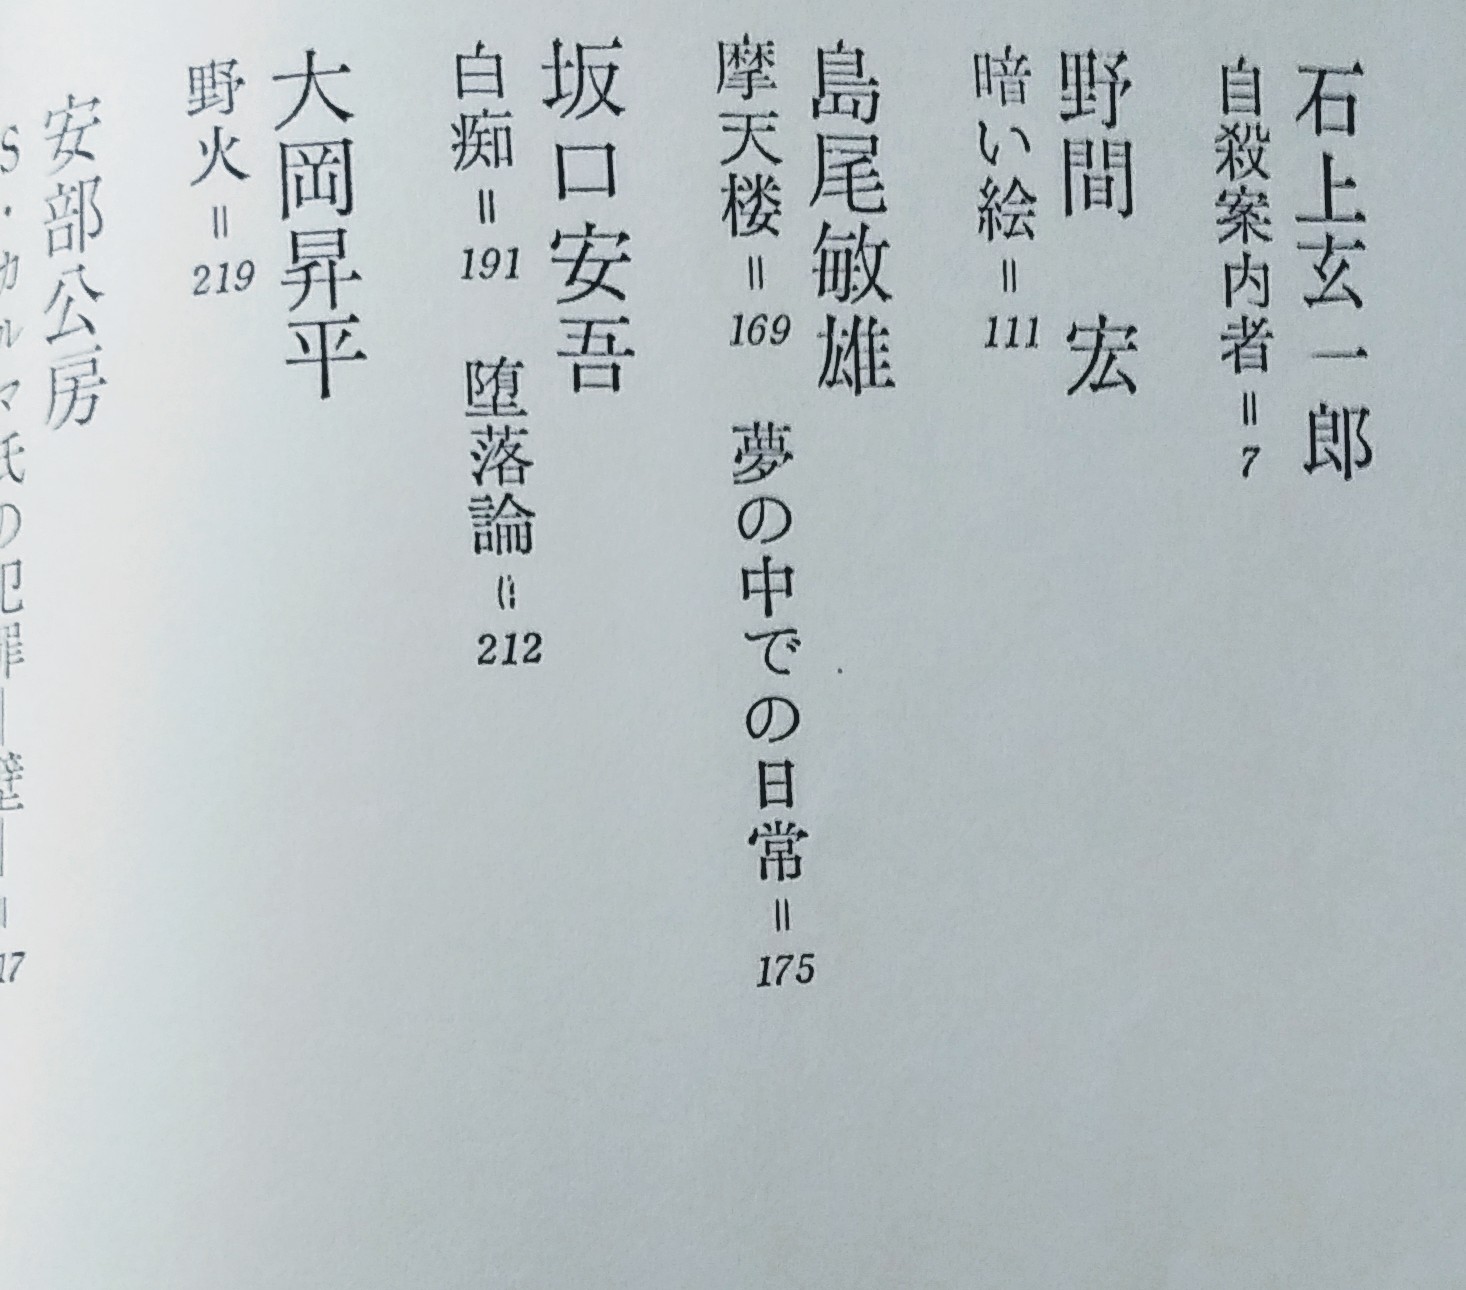 石上玄一郎
自殺案内者＝7
野間　宏
暗い絵＝111
島尾敏雄
摩天楼＝169　夢の中での日常＝175
坂口安吾
白痴＝191　堕落論＝212
大岡昇平
野火＝219
安部公房
S・カルマ氏の犯罪―壁―＝